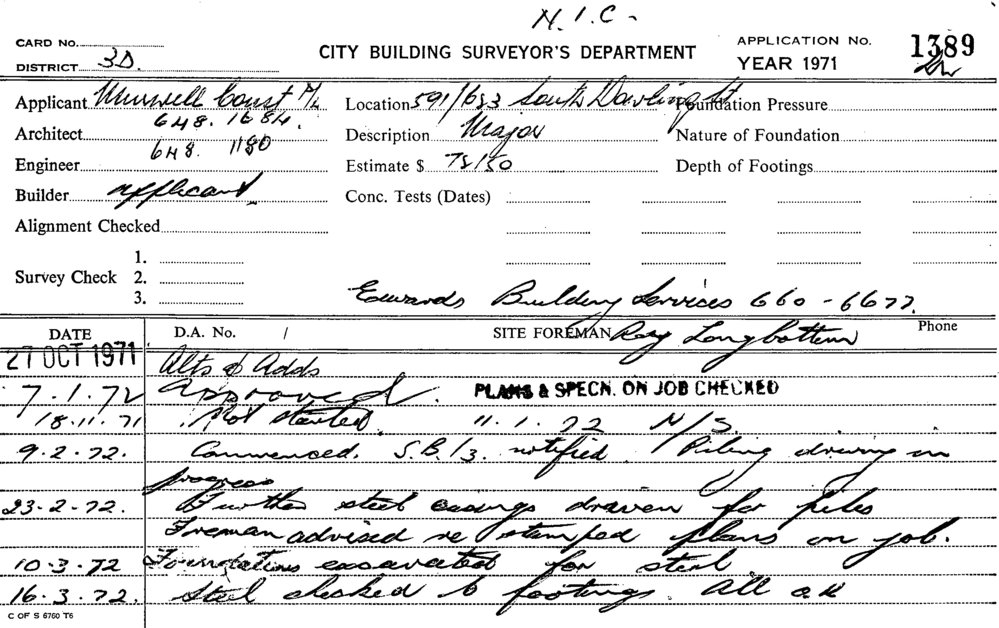 N.I.C.
CARD No. CITY BUILDING SURVEYOR'S DEPARTMENT APPLICATION No. 1389
DISTRICT 3D. YEAR 1971
Applicant Const P/L Location 591/633 South Dowling St Foundation Pressure
648. 1684.
Architect Description Major Nature of Foundation
648. 1180
Engineer Estimate $ Depth of Footings
Builder applicant Conc. Tests (Dates)
Alignment Checked
1.
Survey Check 2.
3.
Edwards Building Services 660-6677.
DATE D.A. No. / SITE FOREMAN Roy Longbottom Phone
27 OCT 1971 Alts & Adds
7.1.72 Approved. PLANS & SPECN. ON JOB CHECKED
18.11.71 Not started 11.1.72 N/S.
9.2.72. Commenced. S.B./3. notified Piling driving in
progress
23.2.72. Further steel casings driven for piles
Foreman advised re stamped plans on job.
10.3.72 Foundations excavated for steel
16.3.72. Steel checked to footings. All ok
C OF S 6760 T6